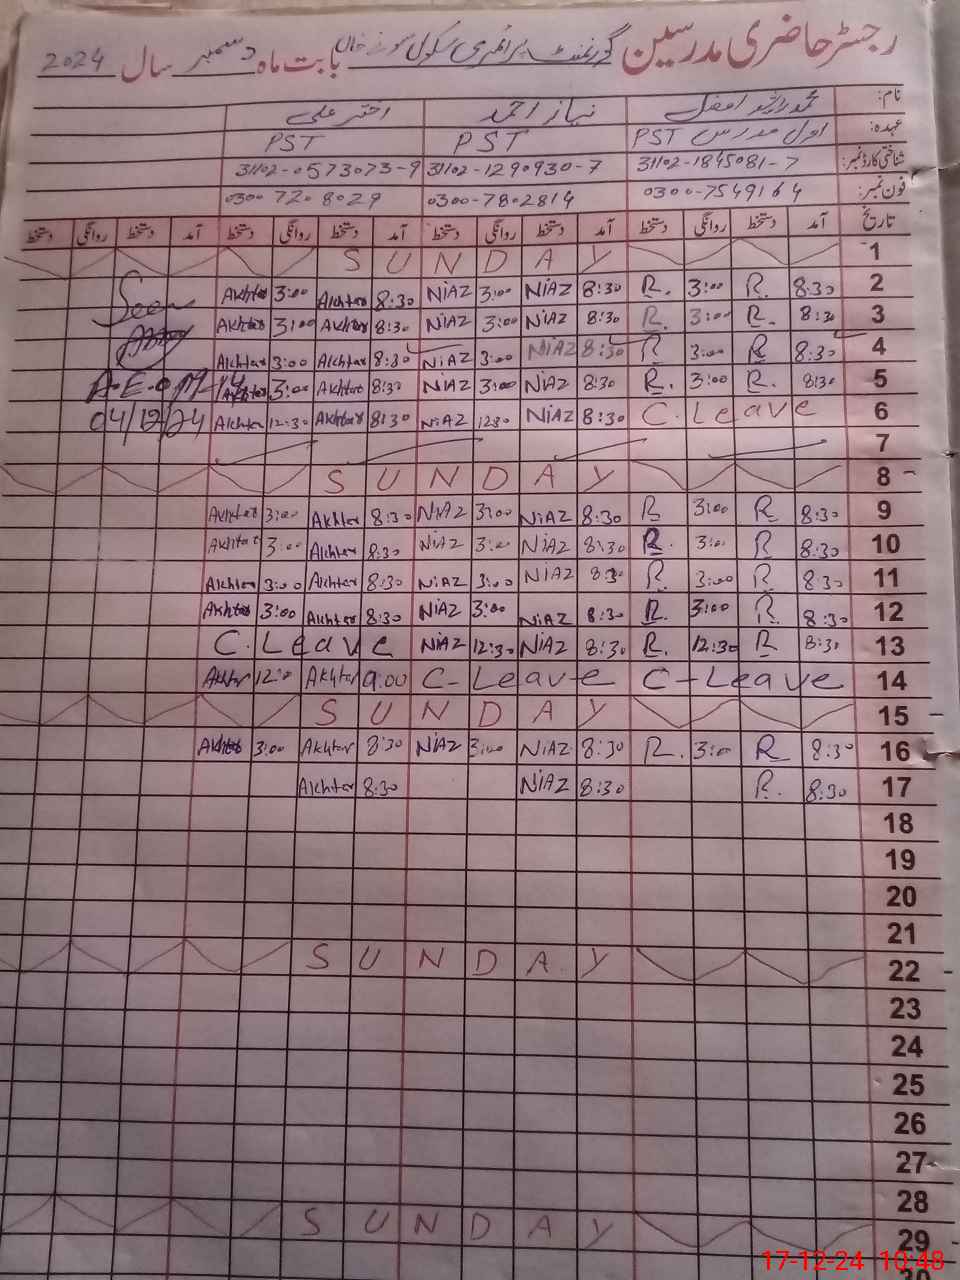 رجسٹر حاضری مدرسین گورنمنٹ پرائمری سکول بابت ماہ دسمبر سال 2024
نام: نیاز احمد اختر علی
عہدہ: اول مدرس PST PST PST
شناختی کارڈ نمبر: 31102-1845081-7 31102-1290930-7 31102-0573073-9
فون نمبر: 0300-7549164 0300-7802814 0300 720 8029
تاریخ آمد دستخط روانگی دستخط آمد دستخط روانگی دستخط آمد دستخط روانگی دستخط آمد دستخط روانگی دستخط
1 SUNDAY
2 8:30 R. 3:00 R. 8:30 NiAZ 3:00 NiAZ 8:30 Akhtar 3:00 Akhtar Seen
3 8:30 R. 3:00 R. 8:30 NiAZ 3:00 NiAZ 8:30 Akhtar 3:00 Akhtar
4 8:30 R 3:00 R 8:30 NiAZ 3:00 NiAZ 8:30 Akhtar 3:00 Akhtar
5 8:30 R. 3:00 R. 8:30 NiAZ 3:00 NiAZ 8:30 Akhtar 3:00 Akhtar A.E.O
6 C.Leave 8:30 NiAZ 12:30 NiAZ 8:30 Akhtar 12:30 Akhtar 04/12/24
7
8 SUNDAY
9 8:30 R 3:00 R 8:30 NiAZ 3:00 NiAZ 8:30 Akhtar 3:00 Akhtar
10 8:30 R 3:00 R. 8:30 NiAZ 3:00 NiAZ 8:30 Akhtar 3:00 Akhtar
11 8:30 R 3:00 R 8:30 NiAZ 3:00 NiAZ 8:30 Akhtar 3:00 Akhtar
12 8:30 R 3:00 R. 8:30 NiAZ 3:00 NiAZ 8:30 Akhtar 3:00 Akhtar
13 8:30 R 12:30 R. 8:30 NiAZ 12:30 NiAZ C.Leave
14 C-Leave C-Leave 9:00 Akhtar 12:0 Akhtar
15 SUNDAY
16 8:30 R 3:00 R. 8:30 NiAZ 3:00 NiAZ 8:30 Akhtar 3:00 Akhtar
17 8:30 R. 8:30 NiAZ 8:30 Akhtar
18
19
20
21
22 SUNDAY
23
24
25
26
27
28
29 SUNDAY
17-12-24 10:48